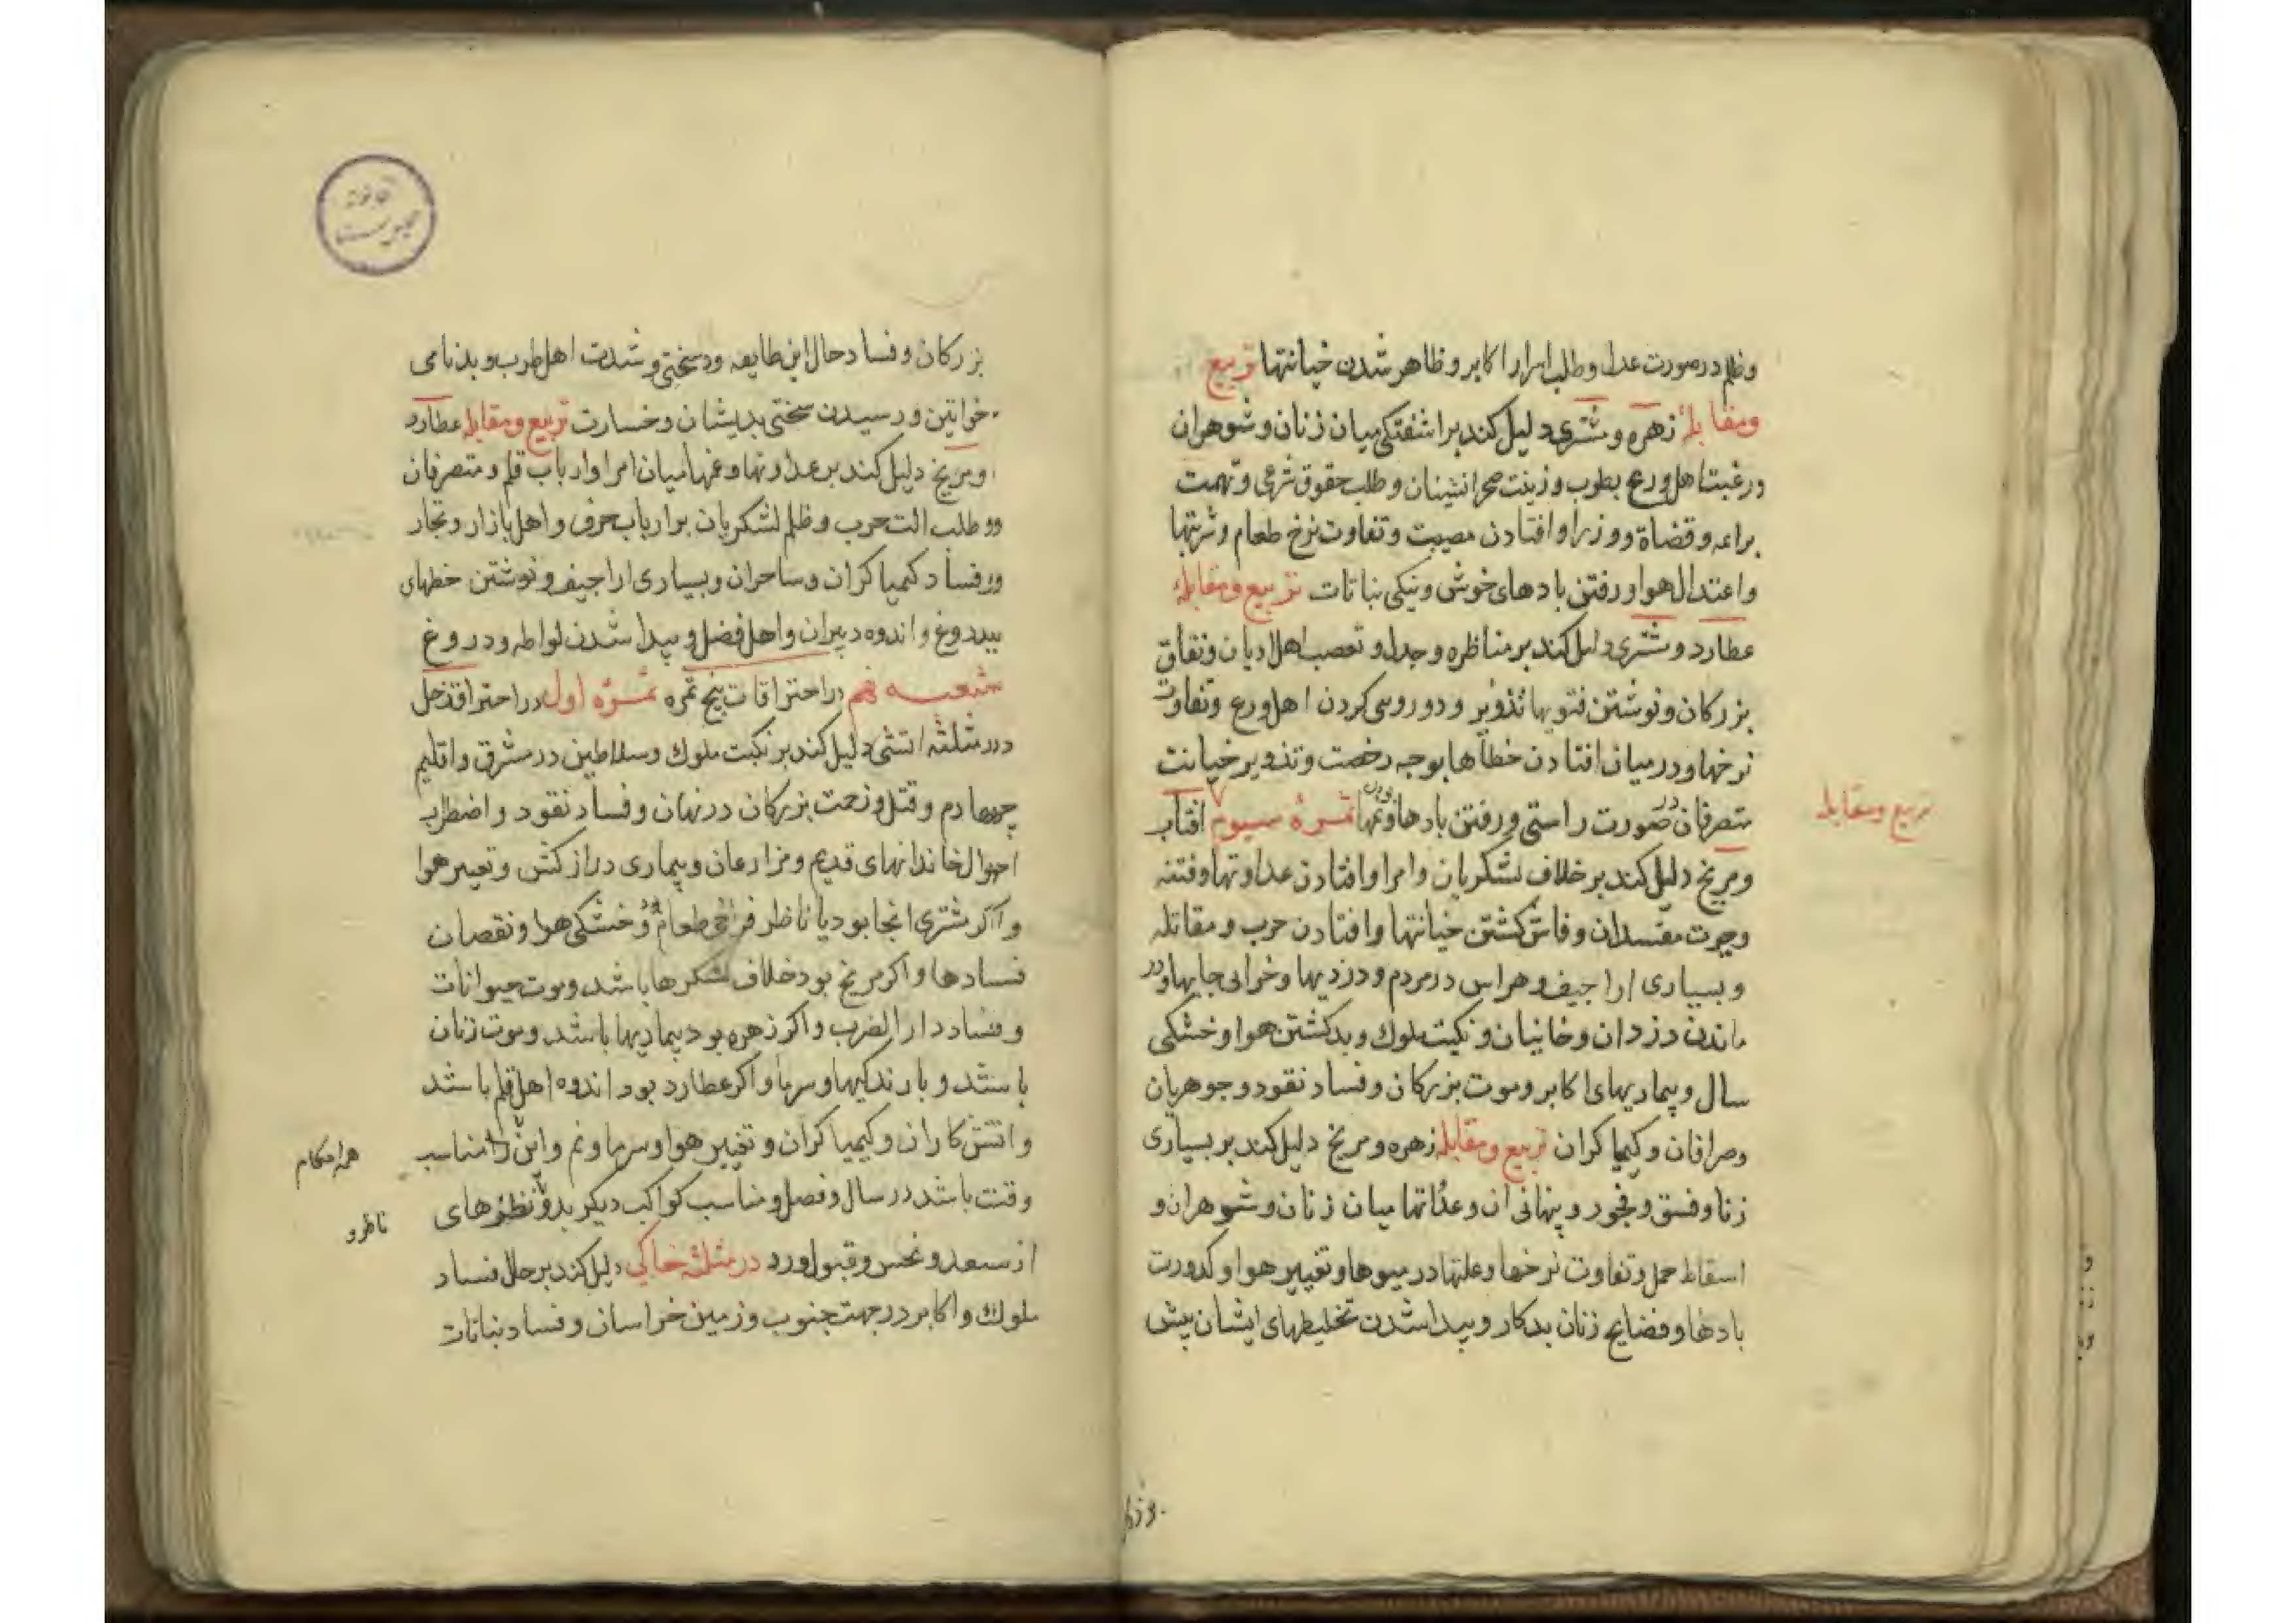 وظلم در صورت عدل وطلب اسرار اکابر وظاهر شدن خیانتها تربیع
ومقابلۀ زهره ومشتری دلیل کند بر اشفتکی میان زنان وشوهران
ورغبت اهل ورع بطرب وزینت صحرانشینان وطلب حقوق شرعی وتهمت
برائمه وقضاة ووزرا وافتادن مصیبت وتفاوت نرخ طعام وشربتها
واعتدال هوا ورفتن بادهای خوش ونیکی نباتات تربیع ومقابلۀ
عطارد ومشتری دلیل کند بر مناظره وجدل وتعصب اهل ادیان ونفاق
بزرکان ونوشتن فتویها بتذویر ودوروسی کردن اهل ورع وتفاوت
نرخها ودر میان افتادن خطاها بوجه رخصت وتذویر خیانت
متصرفان در صورت راستی ورفتن بادها ونمها ثمرۀ سیوم افتاب
تربیع ومقابله
ومریخ دلیل کند بر خلاف لشکریان وامرا وافتادن عداوتها وفتنه
وجرت مفسدان وفاش کشتن خیانتها وافتادن حرب ومقاتله
وبسیاری اراجیف وهراس در مردم ودزدیها وخرابی جایها ودر
ماندن دزدان وخانیان ونکبت ملوک وبد کشتن هوا وخشکی
سال وبیماریهای اکابر وموت بزرکان وفساد نقود وجوهریان
وصرافان وکیمیاکران تربیع ومقابله زهره ومریخ دلیل کند بر بسیاری
زنا وفسق وفجور وپنهانی ان وعداتها میان زنان وشوهران و
اسقاط حمل وتفاوت نرخها وعلتها در میوها وتغییر هوا وکدورت
بادها وفضایح زنان بدکار وپیدا شدن تخلیطهای ایشان پیش
بزرکان وفساد حال این طایفه ودسختی وشدت اهل طرب وبدنامی
خواتین ورسیدن سختی بدیشان وخسارت تربیع ومقابله عطارد
ومریخ دلیل کند بر عداوتها وغمها میان امرا وارباب قلم ومتصرفان
ووطلب الت حرب وظلم لشکریان بر ارباب حرف واهل بازار وتجار
ورفساد کیمیاکران وساحران وبسیاری اراجیف ونوشتن خطهای
بدروغ واندوه دبیران واهل فضل وپیدا شدن لواطه ودروغ
شعبه نهم در احتراقات پنج ثمره ثمرۀ اول در احتراق زحل
در مثلثه اتشی دلیل کند بر نکبت ملوک وسلاطین در مشرق واقلیم
چهارم وقتل وزحمت بزرکان در نهان وفساد نقود واضطراب
احوال خاندانهای قدیم ومزارعان وبیماری دراز کش وتغییر هوا
واکر مشتری انجا بود یا ناظر فراخی طعام بود وخشکی هوا ونقصان
فسادها واکر مریخ بود خلاف لشکرها باشد وموت حیوانات
وفساد دار الضرب واکر زهره بود بیماریها باشد وموت زنان
باشد وبارندکیها وسرما واکر عطارد بود اندوه اهل قلم باشد
واتش کاران وکیمیاکران وتغییر هوا وسرما ونم واین را مناسب
همه احکام
وقت باشد در سال وفصل ومناسب کواکب دیکر بدو ونظرهای
ناظر و
از سعد ونحس وقبول ورد در مثلثۀ خاکی دلیل کند بر حال فساد
ملوک واکابر در جهت جنوب وزمین خراسان وفساد نباتات